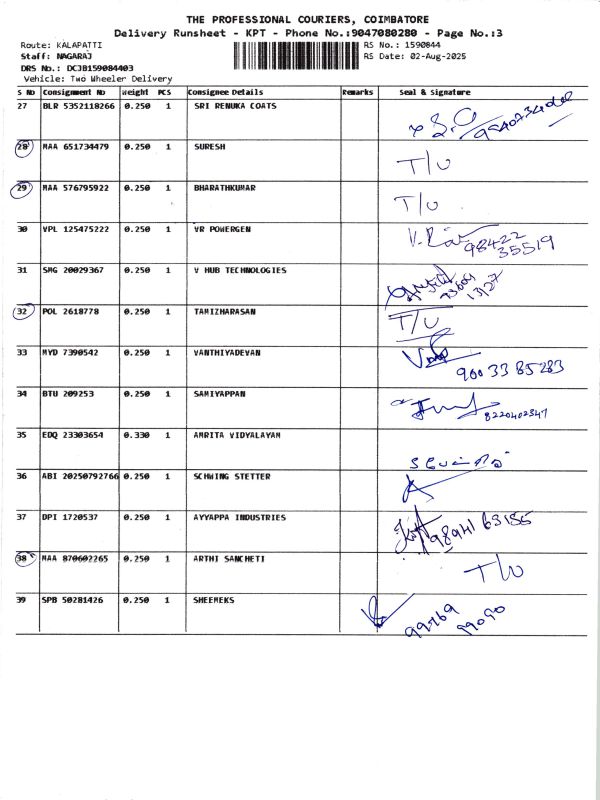 THE PROFESSIONAL COURIERS, COIMBATORE
Delivery Runsheet - KPT - Phone No.:9047080280 - Page No.:3
Route: KALAPATTI RS No.: 1590844
Staff: NAGARAJ RS Date: 02-Aug-2025
DRS No.: DCJB159084403
Vehicle: Two Wheeler Delivery
S No Consignment No Weight PCS Consignee Details Remarks Seal & signature
27 BLR 5352118266 0.250 1 SRI RENUKA COATS
28 MAA 651734479 0.250 1 SURESH T/U
29 MAA 576795922 0.250 1 BHARATHKUMAR T/U
30 VPL 125475222 0.250 1 VR POWERGEN 98422
35519
31 SMG 20029367 0.250 1 V HUB TECHNOLOGIES
32 POL 2618778 0.250 1 TAMIZHARASAN T/U
33 MYD 7390542 0.250 1 VANTHIYADEVAN 9003385283
34 BTU 209253 0.250 1 SAMIYAPPAN 8220402347
35 EDQ 23303654 0.330 1 AMRITA VIDYALAYAM
36 ABI 20250792766 0.250 1 SCHWING STETTER
37 DPI 1720537 0.250 1 AYYAPPA INDUSTRIES
38 MAA 870602265 0.250 1 ARTHI SANCHETI T/U
39 SPB 50281426 0.250 1 SHEEMEKS 99769